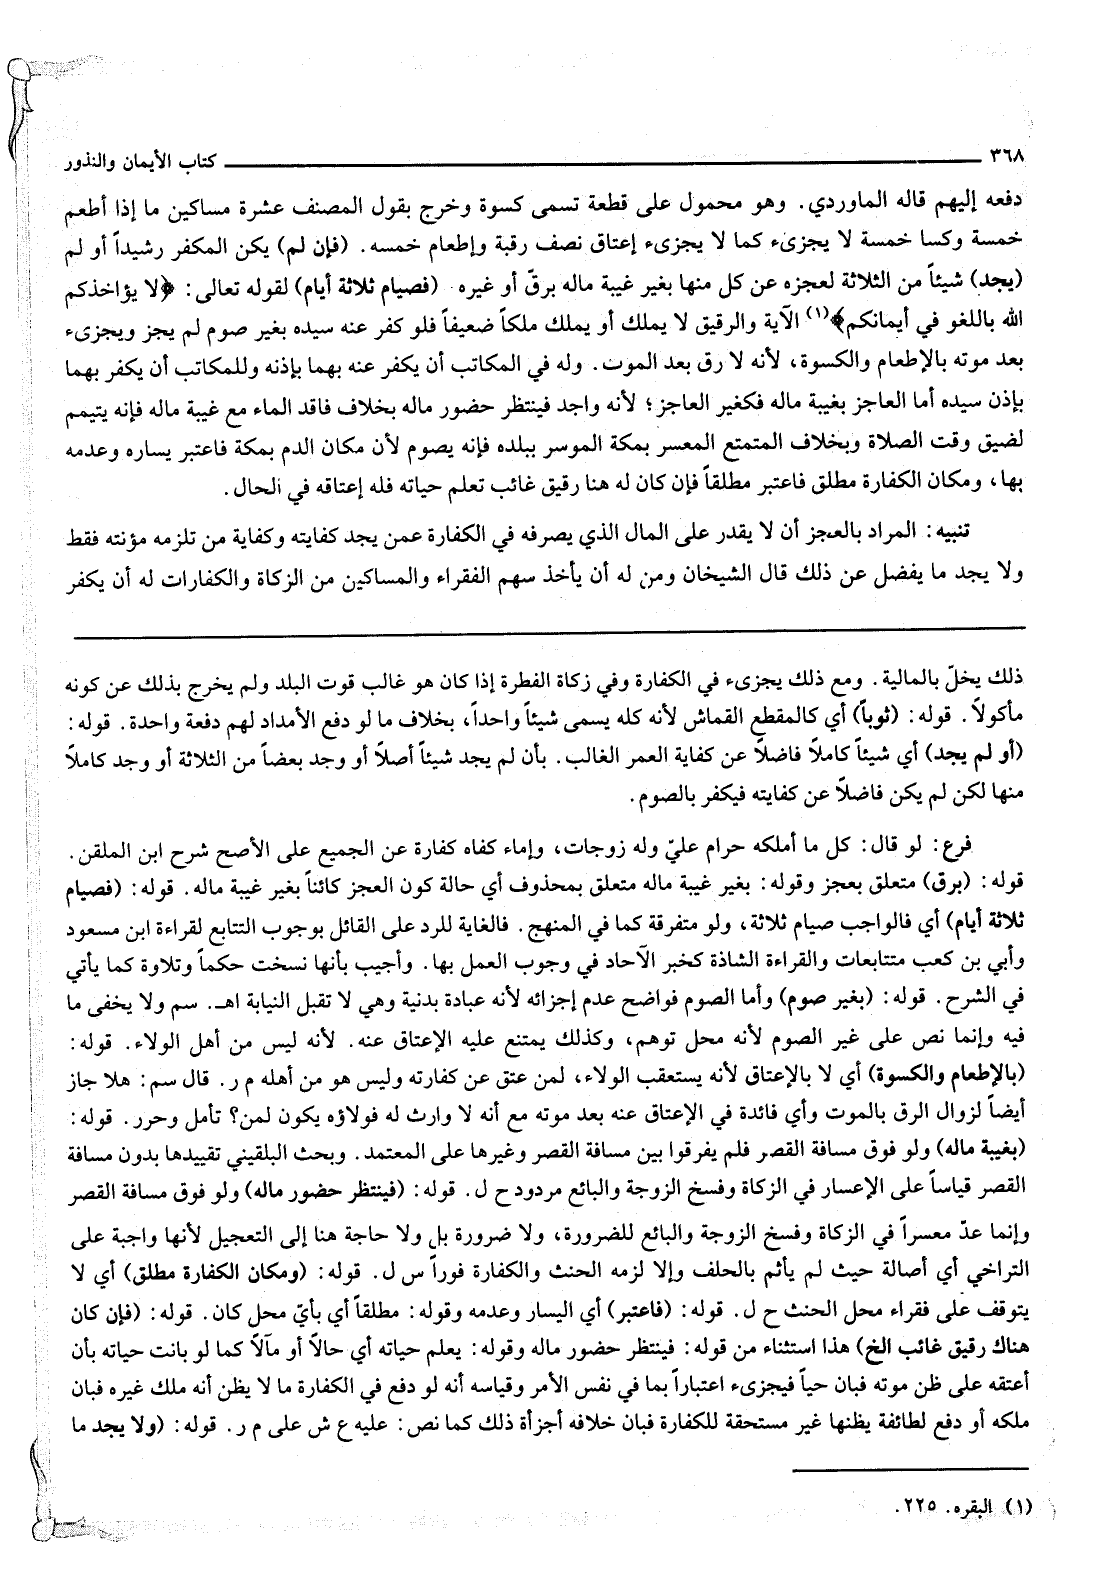 ٣٦٨ كتاب الأيمان والنذور
دفعه إليهم قاله الماوردي. وهو محمول على قطعة تسمى كسوة وخرج بقول المصنف عشرة مساكين ما إذا أطعم
خمسة وكسا خمسة لا يجزىء كما لا يجزىء إعتاق نصف رقبة وإطعام خمسه. (فإن لم) يكن المكفر رشيداً أو لم
(يجد) شيئاً من الثلاثة لعجزه عن كل منها بغير غيبة ماله برقّ أو غيره (فصيام ثلاثة أيام) لقوله تعالى: ﴿لا يؤاخذكم
الله باللغو في أيمانكم﴾(١) الآية والرقيق لا يملك أو يملك ملكاً ضعيفاً فلو كفر عنه سيده بغير صوم لم يجز ويجزىء
بعد موته بالإطعام والكسوة، لأنه لا رق بعد الموت. وله في المكاتب أن يكفر عنه بهما بإذنه وللمكاتب أن يكفر بهما
بإذن سيده أما العاجز بغيبة ماله فكغير العاجز؛ لأنه واجد فينتظر حضور ماله بخلاف فاقد الماء مع غيبة ماله فإنه يتيمم
لضيق وقت الصلاة وبخلاف المتمتع المعسر بمكة الموسر ببلده فإنه يصوم لأن مكان الدم بمكة فاعتبر يساره وعدمه
بها، ومكان الكفارة مطلق فاعتبر مطلقاً فإن كان له هنا رقيق غائب تعلم حياته فله إعتاقه في الحال.
تنبيه: المراد بالعجز أن لا يقدر على المال الذي يصرفه في الكفارة عمن يجد كفايته وكفاية من تلزمه مؤنته فقط
ولا يجد ما يفضل عن ذلك قال الشيخان ومن له أن يأخذ سهم الفقراء والمساكين من الزكاة والكفارات له أن يكفر
ذلك يخلّ بالمالية. ومع ذلك يجزىء في الكفارة وفي زكاة الفطرة إذا كان هو غالب قوت البلد ولم يخرج بذلك عن كونه
مأكولاً. قوله: (ثوباً) أي كالمقطع القماش لأنه كله يسمى شيئاً واحداً، بخلاف ما لو دفع الأمداد لهم دفعة واحدة. قوله:
(أو لم يجد) أي شيئاً كاملاً فاضلاً عن كفاية العمر الغالب. بأن لم يجد شيئاً أصلاً أو وجد بعضاً من الثلاثة أو وجد كاملاً
منها لكن لم يكن فاضلاً عن كفايته فيكفر بالصوم.
فرع: لو قال: كل ما أملكه حرام عليّ وله زوجات، وإماء كفاه كفارة عن الجميع على الأصح شرح ابن الملقن.
قوله: (برق) متعلق بعجز وقوله: بغير غيبة ماله متعلق بمحذوف أي حالة كون العجز كائناً بغير غيبة ماله. قوله: (فصيام
ثلاثة أيام) أي فالواجب صيام ثلاثة، ولو متفرقة كما في المنهج. فالغاية للرد على القائل بوجوب التتابع لقراءة ابن مسعود
وأبي بن كعب متتابعات والقراءة الشاذة كخبر الآحاد في وجوب العمل بها. وأجيب بأنها نسخت حكماً وتلاوة كما يأتي
في الشرح. قوله: (بغير صوم) وأما الصوم فواضح عدم إجزائه لأنه عبادة بدنية وهي لا تقبل النيابة اهـ. سم ولا يخفى ما
فيه وإنما نص على غير الصوم لأنه محل توهم، وكذلك يمتنع عليه الإعتاق عنه. لأنه ليس من أهل الولاء. قوله:
(بالإطعام والكسوة) أي لا بالإعتاق لأنه يستعقب الولاء، لمن عتق عن كفارته وليس هو من أهله م ر. قال سم: هلا جاز
أيضاً لزوال الرق بالموت وأي فائدة في الإعتاق عنه بعد موته مع أنه لا وارث له فولاؤه يكون لمن؟ تأمل وحرر. قوله:
(بغيبة ماله) ولو فوق مسافة القصر فلم يفرقوا بين مسافة القصر وغيرها على المعتمد. وبحث البلقيني تقييدها بدون مسافة
القصر قياساً على الإعسار في الزكاة وفسخ الزوجة والبائع مردود ح ل. قوله: (فينتظر حضور ماله) ولو فوق مسافة القصر
وإنما عدّ معسراً في الزكاة وفسخ الزوجة والبائع للضرورة، ولا ضرورة بل ولا حاجة هنا إلى التعجيل لأنها واجبة على
التراخي أي أصالة حيث لم يأثم بالحلف وإلا لزمه الحنث والكفارة فوراً س ل. قوله: (ومكان الكفارة مطلق) أي لا
يتوقف على فقراء محل الحنث ح ل. قوله: (فاعتبر) أي اليسار وعدمه وقوله: مطلقاً أي بأيّ محل كان. قوله: (فإن كان
هناك رقيق غائب الخ) هذا استثناء من قوله: فينتظر حضور ماله وقوله: يعلم حياته أي حالاً أو مآلاً كما لو بانت حياته بأن
أعتقه على ظن موته فبان حياً فيجزىء اعتباراً بما في نفس الأمر وقياسه أنه لو دفع في الكفارة ما لا يظن أنه ملك غيره فبان
ملكه أو دفع لطائفة يظنها غير مستحقة للكفارة فبان خلافه أجزأة ذلك كما نص: عليه ع ش على م ر. قوله: (ولا يجد ما
(١) البقره. ٢٢٥.